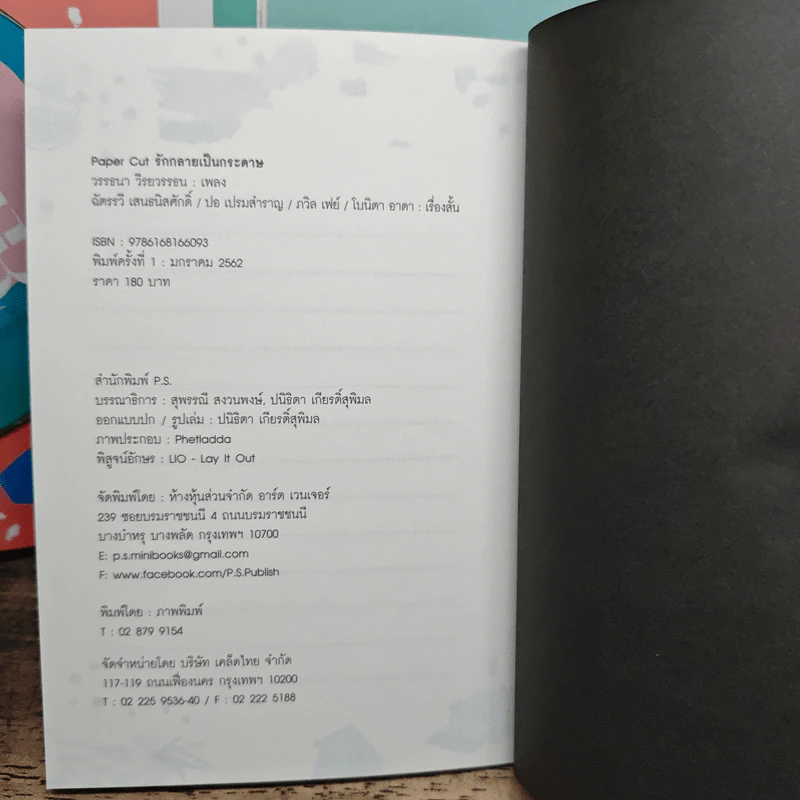 Paper Cut รักกลายเป็นกระดาษ
วรรธนา วีรยวรรธน : เพลง
ฉัตรรวี เสนธนิสศักดิ์ / ปอ เปรมสำราญ / ภวิล เฟย์ / โบนิตา อาดา : เรื่องสั้น
ISBN : 9786168166093
พิมพ์ครั้งที่ 1 : มกราคม 2562
ราคา 180 บาท
สำนักพิมพ์ P.S.
บรรณาธิการ : สุพรรณี สงวนพงษ์, ปนิธิตา เกียรติ์สุพิมล
ออกแบบปก / รูปเล่ม : ปนิธิตา เกียรติ์สุพิมล
ภาพประกอบ : Phetladda
พิสูจน์อักษร : LIO - Lay It Out
จัดพิมพ์โดย : ห้างหุ้นส่วนจำกัด อาร์ต เวนเจอร์
239 ซอยบรมราชชนนี 4 ถนนบรมราชชนนี
บางบำหรุ บางพลัด กรุงเทพฯ 10700
E: p.s.minibooks@gmail.com
F: www.facebook.com/P.S.Publish
พิมพ์โดย : ภาพพิมพ์
T : 02 879 9154
จัดจำหน่ายโดย บริษัท เคล็ดไทย จำกัด
117-119 ถนนเฟื่องนคร กรุงเทพฯ 10200
T : 02 225 9536-40 / F : 02 222 5188